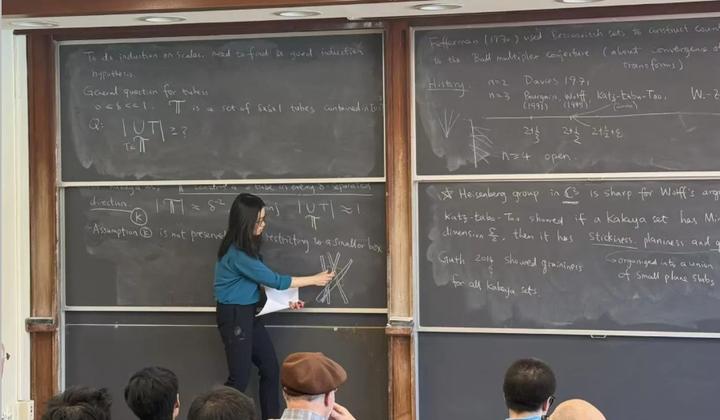 To do induction on scales, need to find a good induction
hypothesis.
General question for tubes
0 < δ < 1. 𝕋 is a set of δxδx1 tubes contained in
Q: | ∪ T | ≥ ?
T∈𝕋
direction. |𝕋| ≈ δ⁻² | ∪ T | ≈ 1
(k) 𝕋
- Assumption (k) is not preserved restricting to a smaller box
Fefferman (1970) used sets to construct
to the Ball multiplier conjecture (about convergence of
transforms)
History. n=2 Davies 1971
n=3 Bourgain, Wolff, Katz-Laba-Tao, W.-
(1991) (1995) (2000)
2+1/3 2+1/2 2+1/2+ε
n≥4 open.
Heisenberg group in ℂ³ is sharp for Wolff's
Katz-Laba-Tao showed if a Kakeya set has
dimension 5/2, then it has stickiness, planiness and
Guth 2014 showed graininess
for all Kakeya sets.
organized into a union
of small plane slabs